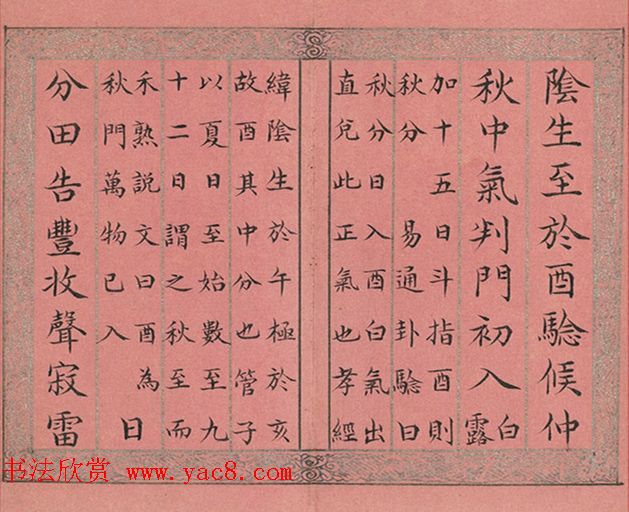 陰生至於酉騐候仲
秋中氣判門初入白露
加十五日斗指酉則
秋分 易通卦騐曰
秋分日入酉白氣出
直兌此正氣也孝經
緯陰生於午極於亥
故酉其中分也管子
以夏日至始數至九
十二日謂之秋至而
禾熟說文曰酉為
秋門萬物已入 日
分田告豐收聲寂雷
书法欣赏 www.yac8.com